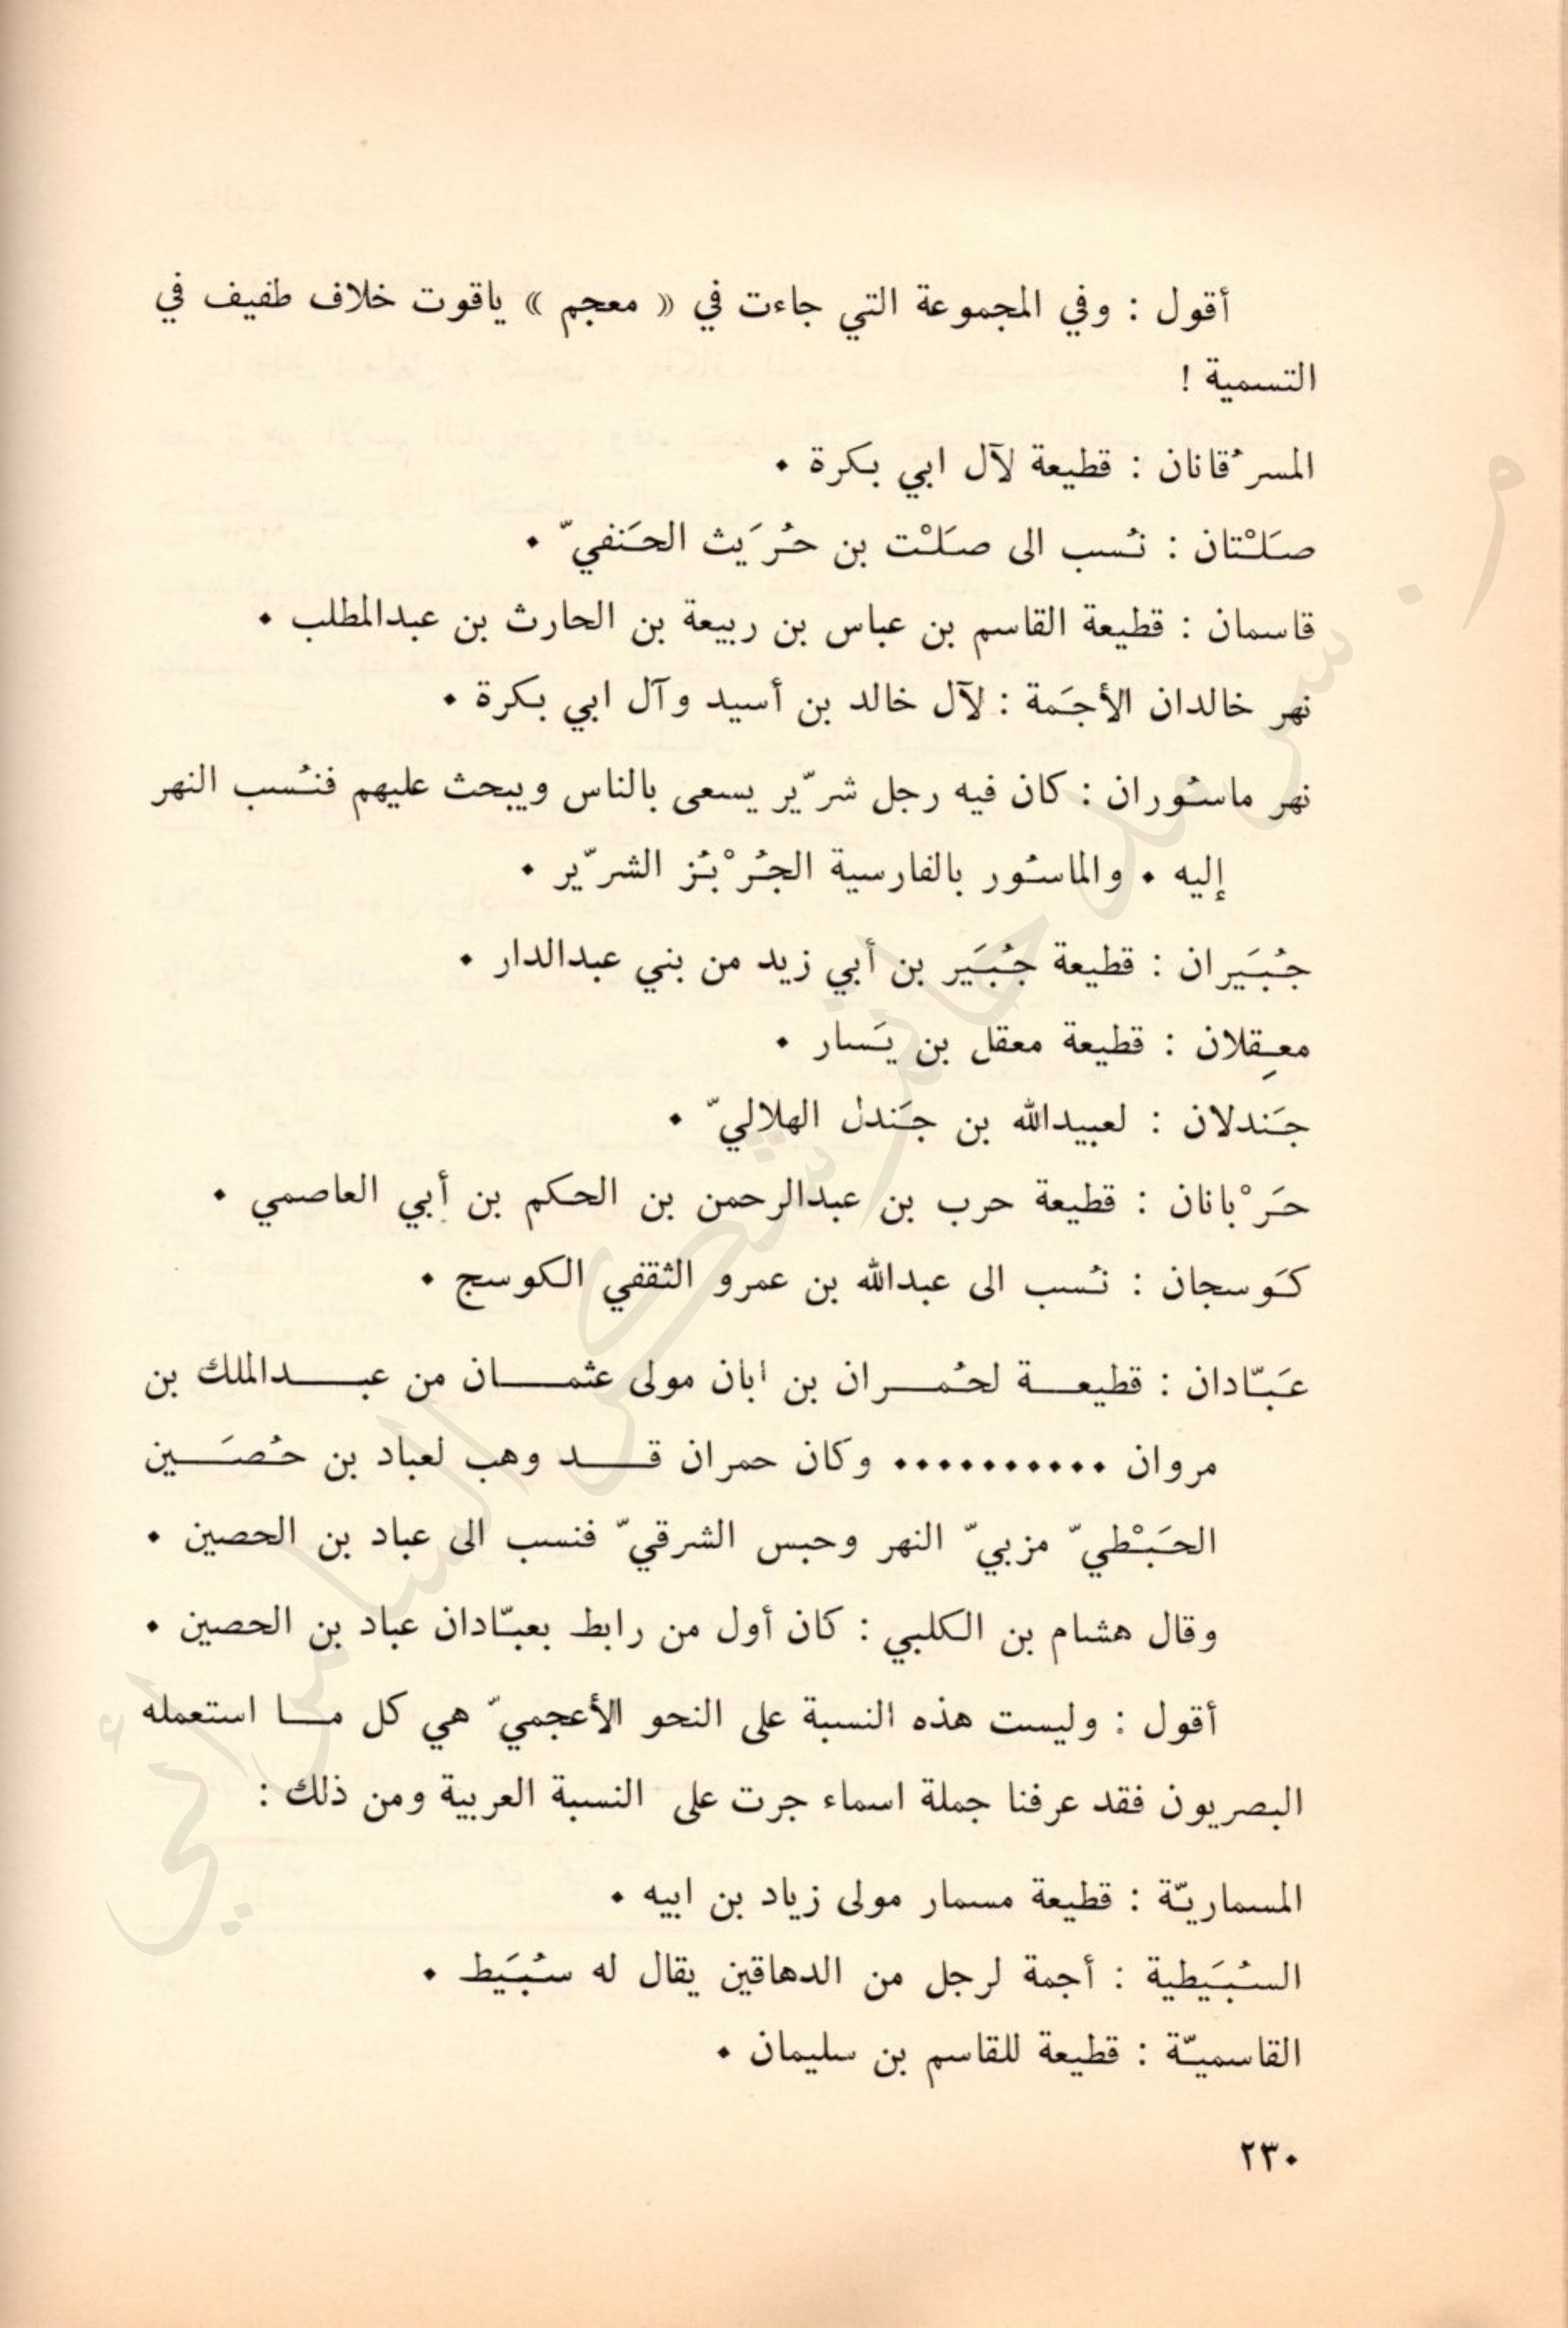 أقول : وفي المجموعة التي جاءت في « معجم » ياقوت خلاف طفيف في
التسمية !
المسرُقانان : قطيعة لآل ابي بكرة .
صَلْتان : نُسب الى صَلْت بن حُرَيث الحَنفيّ .
قاسمان : قطيعة القاسم بن عباس بن ربيعة بن الحارث بن عبدالمطلب .
نهر خالدان الأجَمة : لآل خالد بن أسيد وآل ابي بكرة .
نهر ماسُوران : كان فيه رجل شرّير يسعى بالناس ويبحث عليهم فنُسب النهر
إليه . والماسُور بالفارسية الجُرْبُز الشرّير .
جُبَيران : قطيعة جُبَير بن أبي زيد من بني عبدالدار .
معِقلان : قطيعة معقل بن يَسار .
جَندلان : لعبيدالله بن جَندل الهلاليّ .
حَرْبانان : قطيعة حرب بن عبدالرحمن بن الحكم بن أبي العاصمي .
كَوسجان : نُسب الى عبدالله بن عمرو الثقفي الكوسج .
عَبّادان : قطيعة لحُمران بن ابان مولى عثمان من عبدالملك بن
مروان .......... وكان حمران قد وهب لعباد بن حُصَين
الحَبْطيّ مزبيّ النهر وحبس الشرقيّ فنسب الى عباد بن الحصين .
وقال هشام بن الكلبي : كان أول من رابط بعبّادان عباد بن الحصين .
أقول : وليست هذه النسبة على النحو الأعجميّ هي كل ما استعمله
البصريون فقد عرفنا جملة اسماء جرت على النسبة العربية ومن ذلك :
المسماريّة : قطيعة مسمار مولى زياد بن ابيه .
السُبَيطية : أجمة لرجل من الدهاقين يقال له سُبَيط .
القاسميّة : قطيعة للقاسم بن سليمان .
٢٣٠